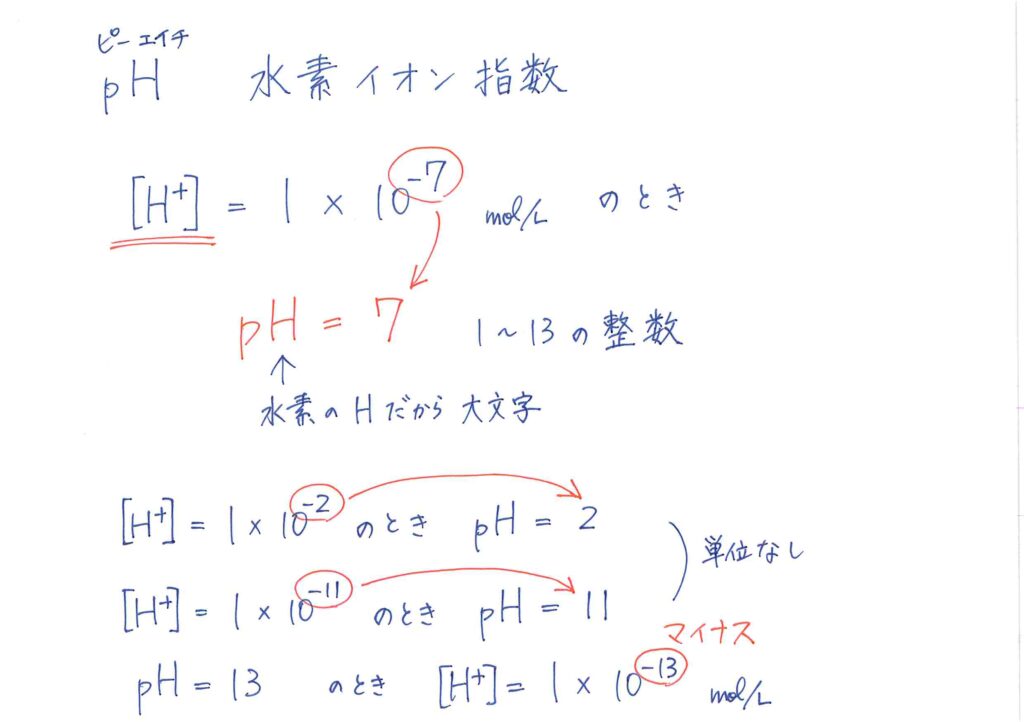 ピーエイチ
pH 水素イオン指数
[H⁺] = 1 × 10⁻⁷ mol/L のとき
pH = 7 1~13の整数
↑
水素のHだから大文字
[H⁺] = 1 × 10⁻² のとき pH = 2
単位なし
[H⁺] = 1 × 10⁻¹¹ のとき pH = 11
マイナス
pH = 13 のとき [H⁺] = 1 × 10⁻¹³ mol/L